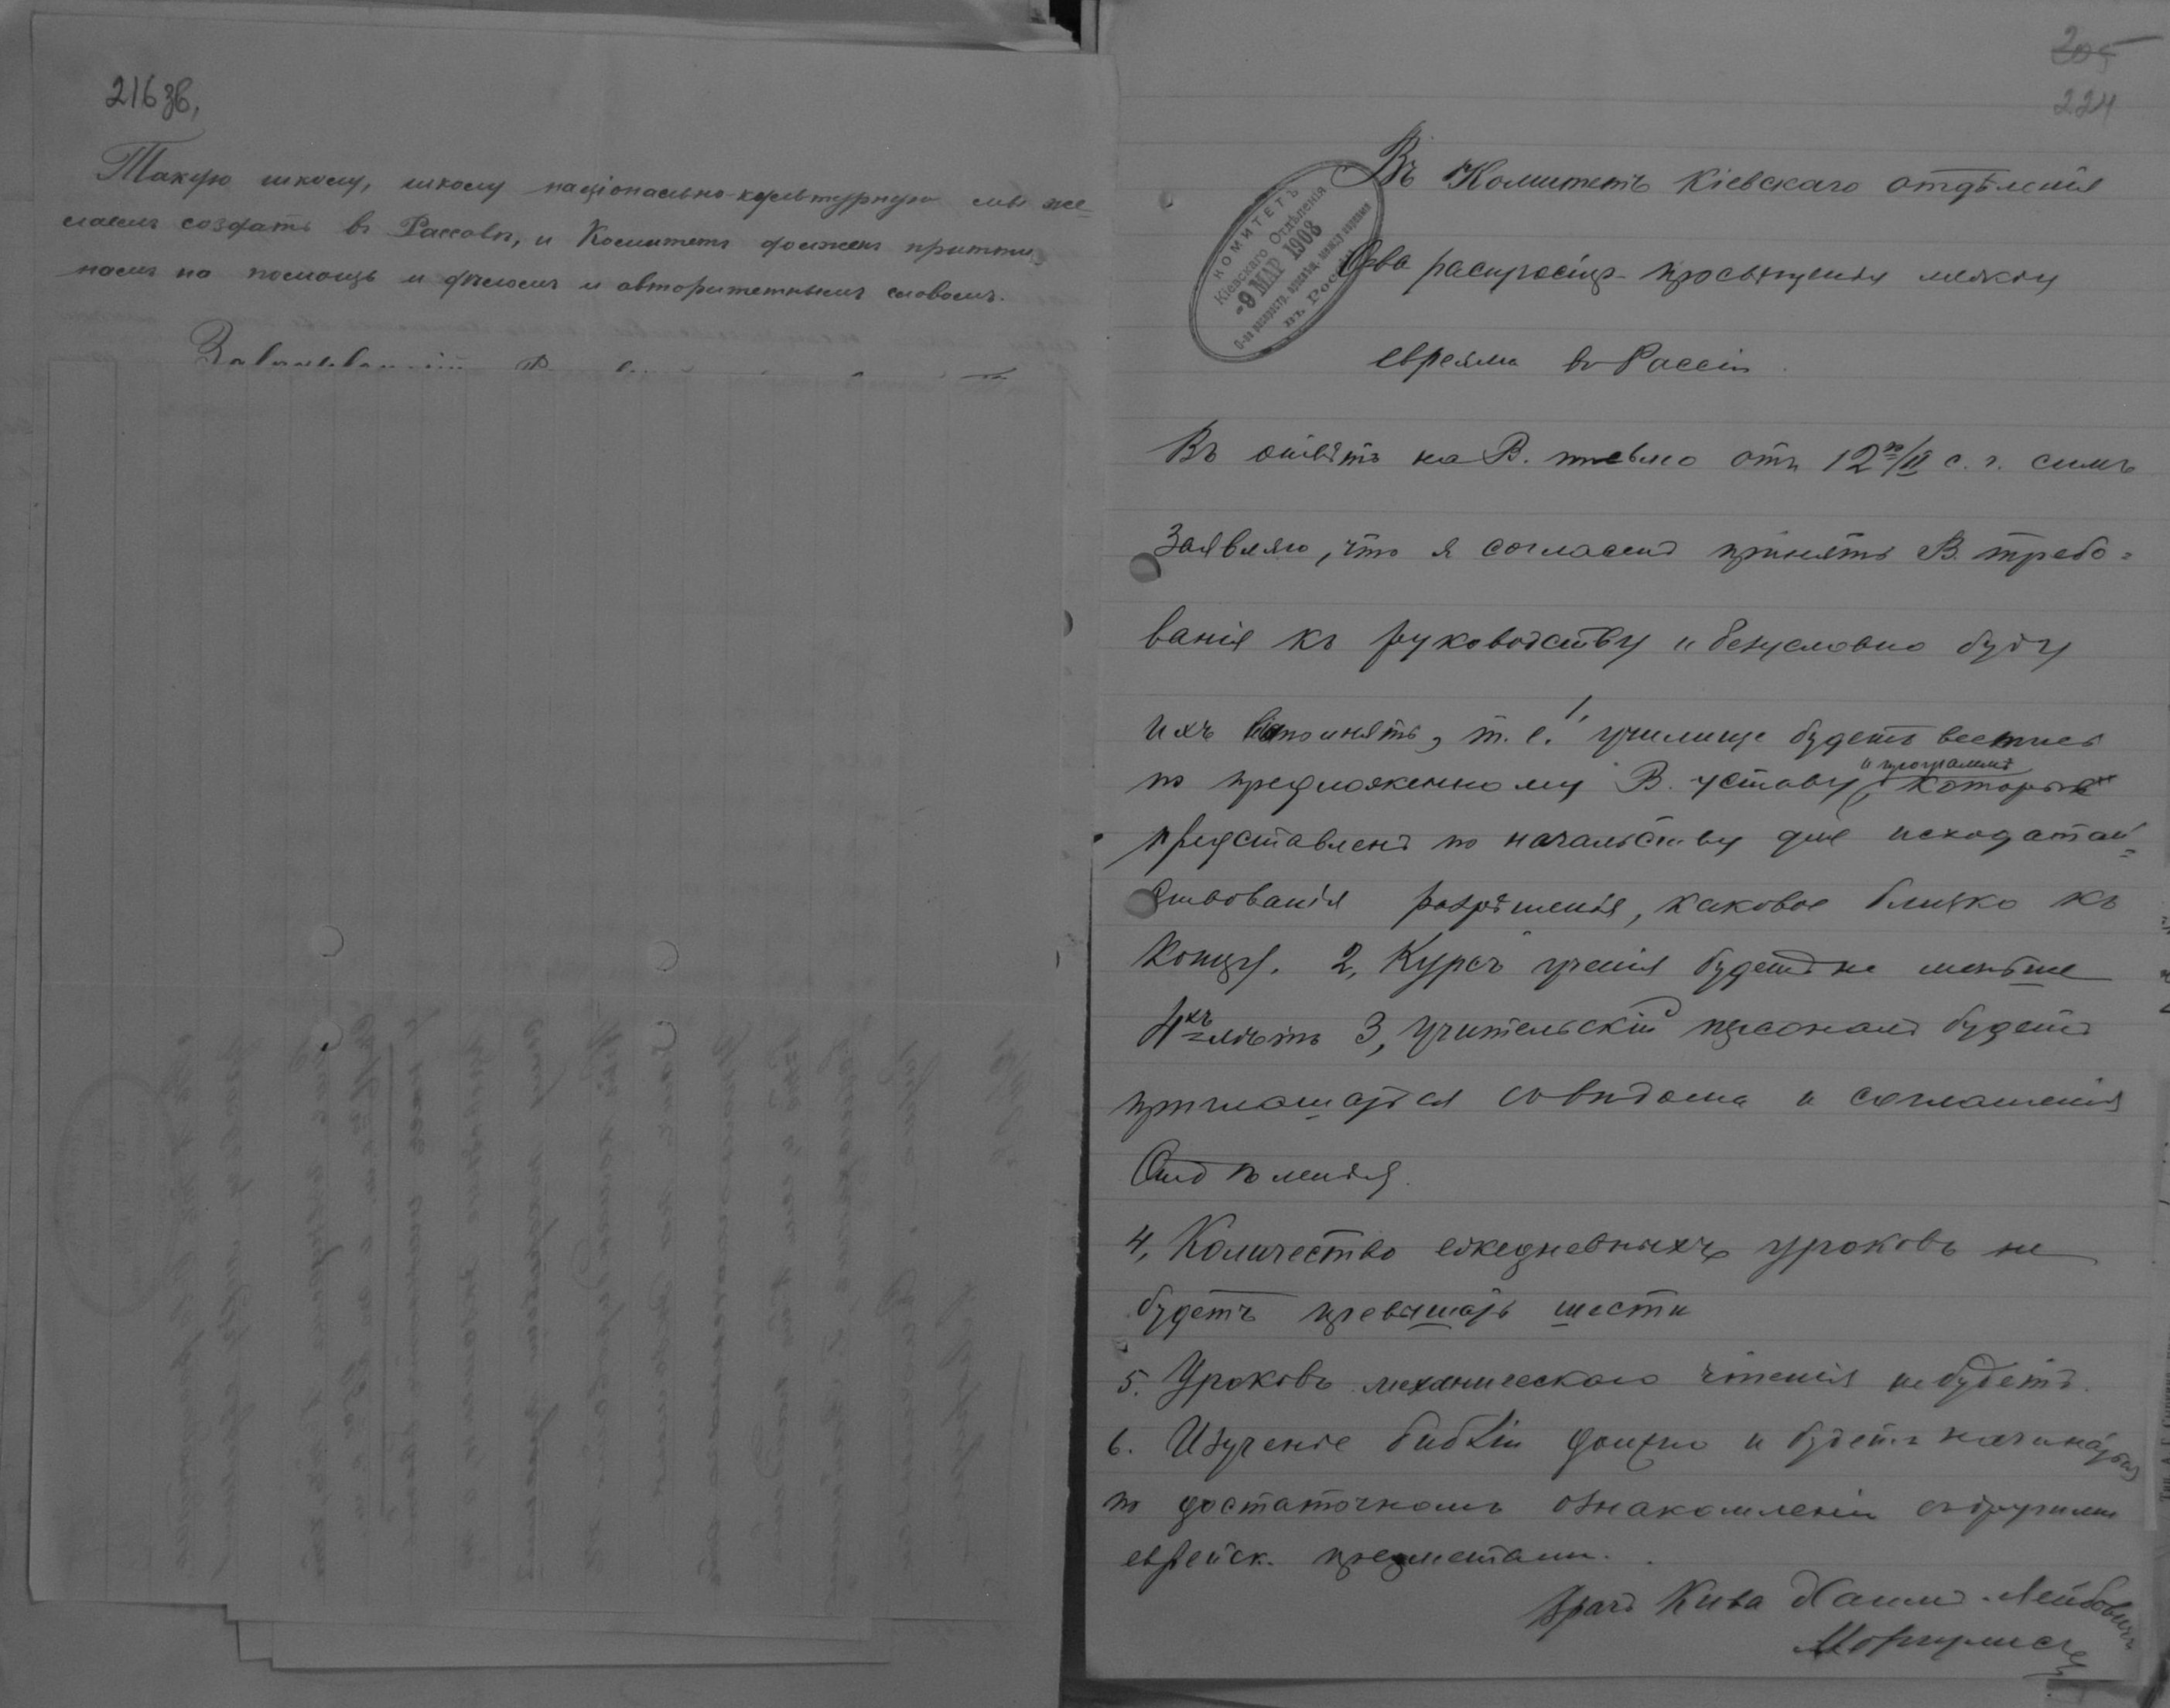 216 зв,
Такую школу, школу націонасьно-культурную мы же-
лаемъ создать въ Рассавѣ, и Комитетъ долженъ притти
намъ на помощь и дѣломъ и авторитетнымъ словомъ.
205
224
КОМИТЕТЪ
Кіевскаго Отдѣленія
-9 МАР 1908
О-ва распростр. просвѣщ. между евреями
въ Россіи
Въ Комитетъ Кіевскаго отдѣленія
О-ва распростр- просвѣщенія между
евреями въ Россіи.
Въ отвѣтъ на В. письмо отъ 12го/II с. г. симъ
заявляю, что я согласенъ принять В. требо=
ванія къ руководству и безусловно буду
ихъ выполнять, т. е. 1, училище будетъ вестись
по предложенному В. уставу и программѣ, который
представленъ по начальству для исходатай=
ствованія разрѣшенія, каковое близко къ
концу. 2, Курсъ ученія будетъ не меньше
4хъ лѣтъ 3, учительскій персоналъ будетъ
приглашаться съ вѣдома и соглашенія
Отдѣленія.
4, Количество ежедневныхъ уроковъ не
будетъ превышать шести
5. Уроковъ механическаго чтенія не будетъ.
6. Изученіе библіи должно и будетъ начинаться
по достаточномъ ознакомленіи съ другими
еврейск. предметами.
Врачъ Кива Хаимъ-Лейбовичъ
Моргулисъ